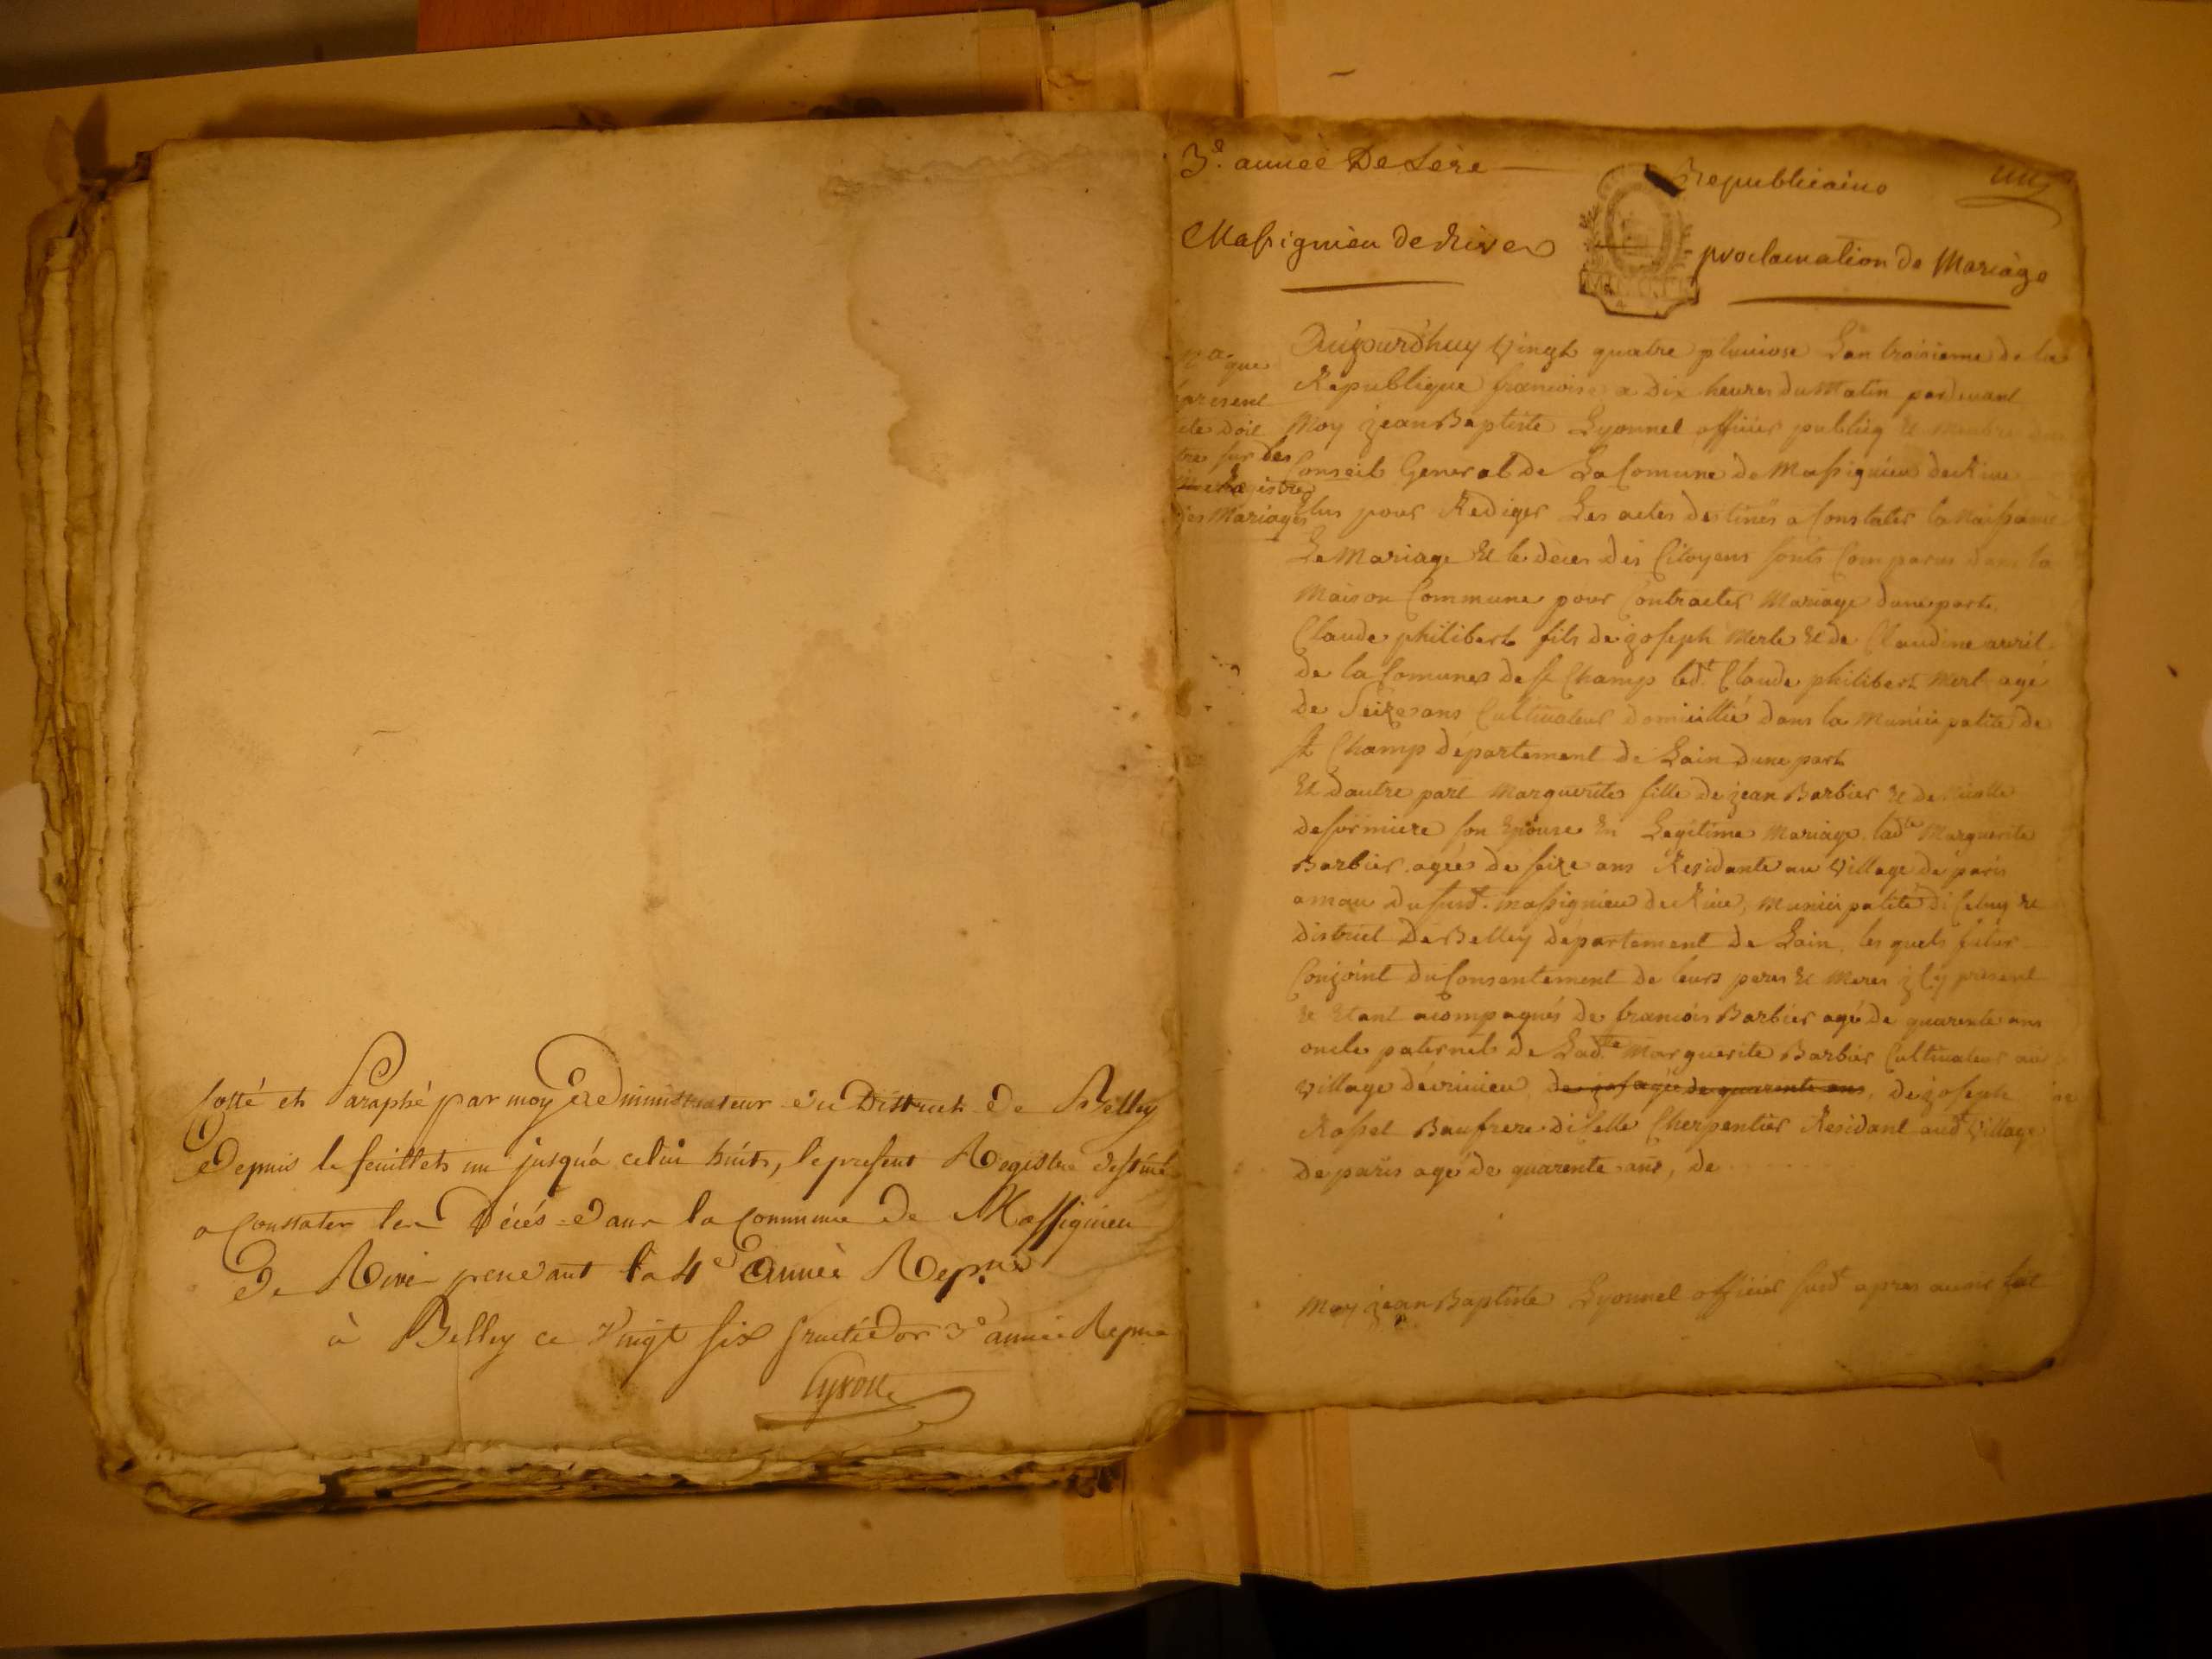 Cotté et Paraphé par moy Administrateur du District de Belley
Depuis le feuillet un jusqu'a celui huit, le present Registre destiné
a Constater les Décés dans la Commune de Massignieu
de Rive pendant la 4e année Repne
à Belley ce Vingt six fructidor 3e année Repne
3e. année De Lère Republicaine
un
Massignieu de Rive proclamation de Mariage
Na. que
present
acte doit
etre sur les
Registre
des Mariages
Aujourdhuy Vingt quatre pluviose Lan troisieme de la
Republique francoise a Dix heures du Matin pardevant
Moy jean Baptiste Lyonnel officier publiq et Membre du
Conseil General de La Comune de Massignieu de Rive
Elus pour Rediger Les actes destinés a Constater la Naissance
Le Mariage et le deces des Citoyens sonts Comparus dans la
Maison Commune pour Contracter Mariage dune part.
Claude philibert fils de joseph Merle et de Claudine avril
de la Comune de st Champ led.t Claude philibert Merl agé
de Seize ans Cultivateur domicillié dans la Municipalité de
st Champ département de Lain dune part
Et dautre part Marguerite fille de jean Barbier et de
deformiere son Epouse En Legitime Mariage, lad.te Marguerite
Barbier agée de seize ans Residante au Village de paris
amau du susd.t Massignieu de Rive, Municipalité diCeluy et
district De Belley departement de Lain, les quels futur
Conjoint du Consentement de leurs peres et Meres jCy présent
et Etant acompagnés de francois Barbier agé de quarente ans
oncle paternel de Lad.te Marguerite Barbier Cultivateur au
Village décrivieu, de jos agée de quarente ans, de joseph
Rosset Baufrere diCelle Cherpentier Residant aud.t Village
de paris agé de quarente ans, de
Moy jean Baptiste Lyonnel officier susd.t apres avoir fait